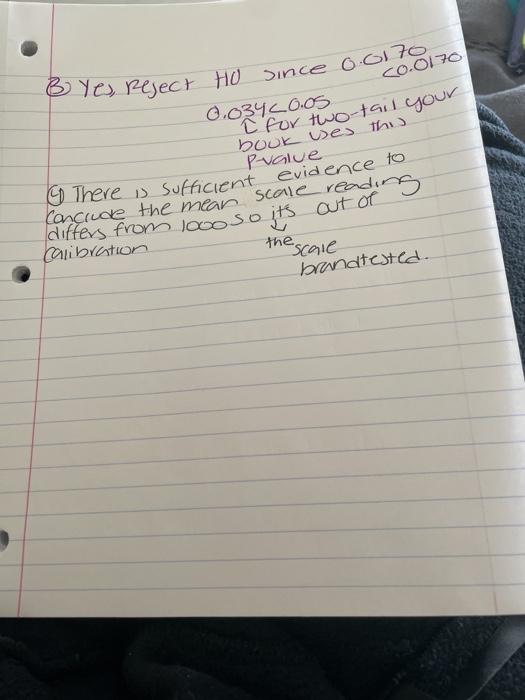 ③ Yes, Reject H0 since 0.0170
<0.0170
0.034<0.05
↑ for two-tail your
book uses this
P-value
④ There is sufficient evidence to
conclude the mean scale reading
differs from 1000 so its out of
calibration
↓
the scale
brand tested.